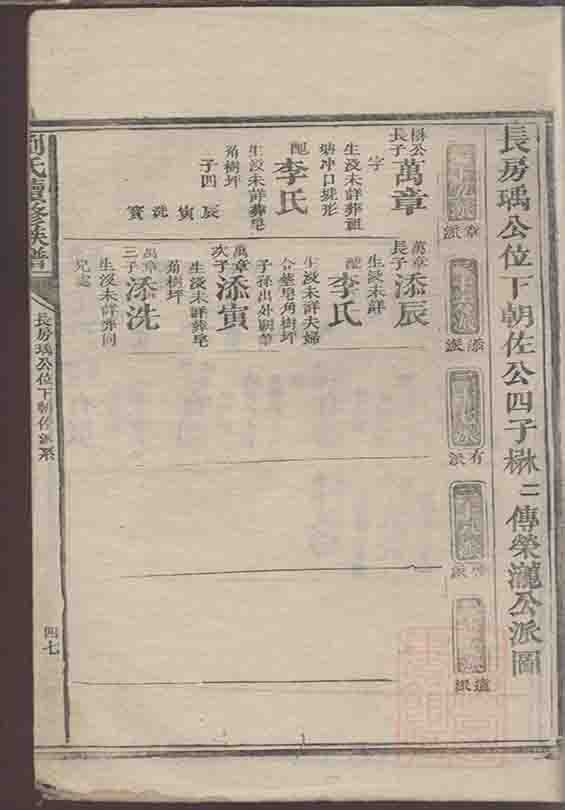 長房瑀公位下朝佐公四子楙二傳榮瀧公派圖
章派
添派
有派
派
道派
楙公長子
萬章
字
生沒未詳葬祖
塘冲口梽形
配李氏
生沒未詳葬皂
角樹坪
子四
辰 寅 洗 寶
萬章長子
添辰
生沒未詳
配李氏
生沒未詳夫婦
合塟皂角樹坪
子孫出外顧業
萬章次子
添寅
生沒未詳葬皂
角樹坪
萬章三子
添洗
生沒未詳葬同
兄處
劉氏續修族譜
長房瑀公位下朝佐派系
四七